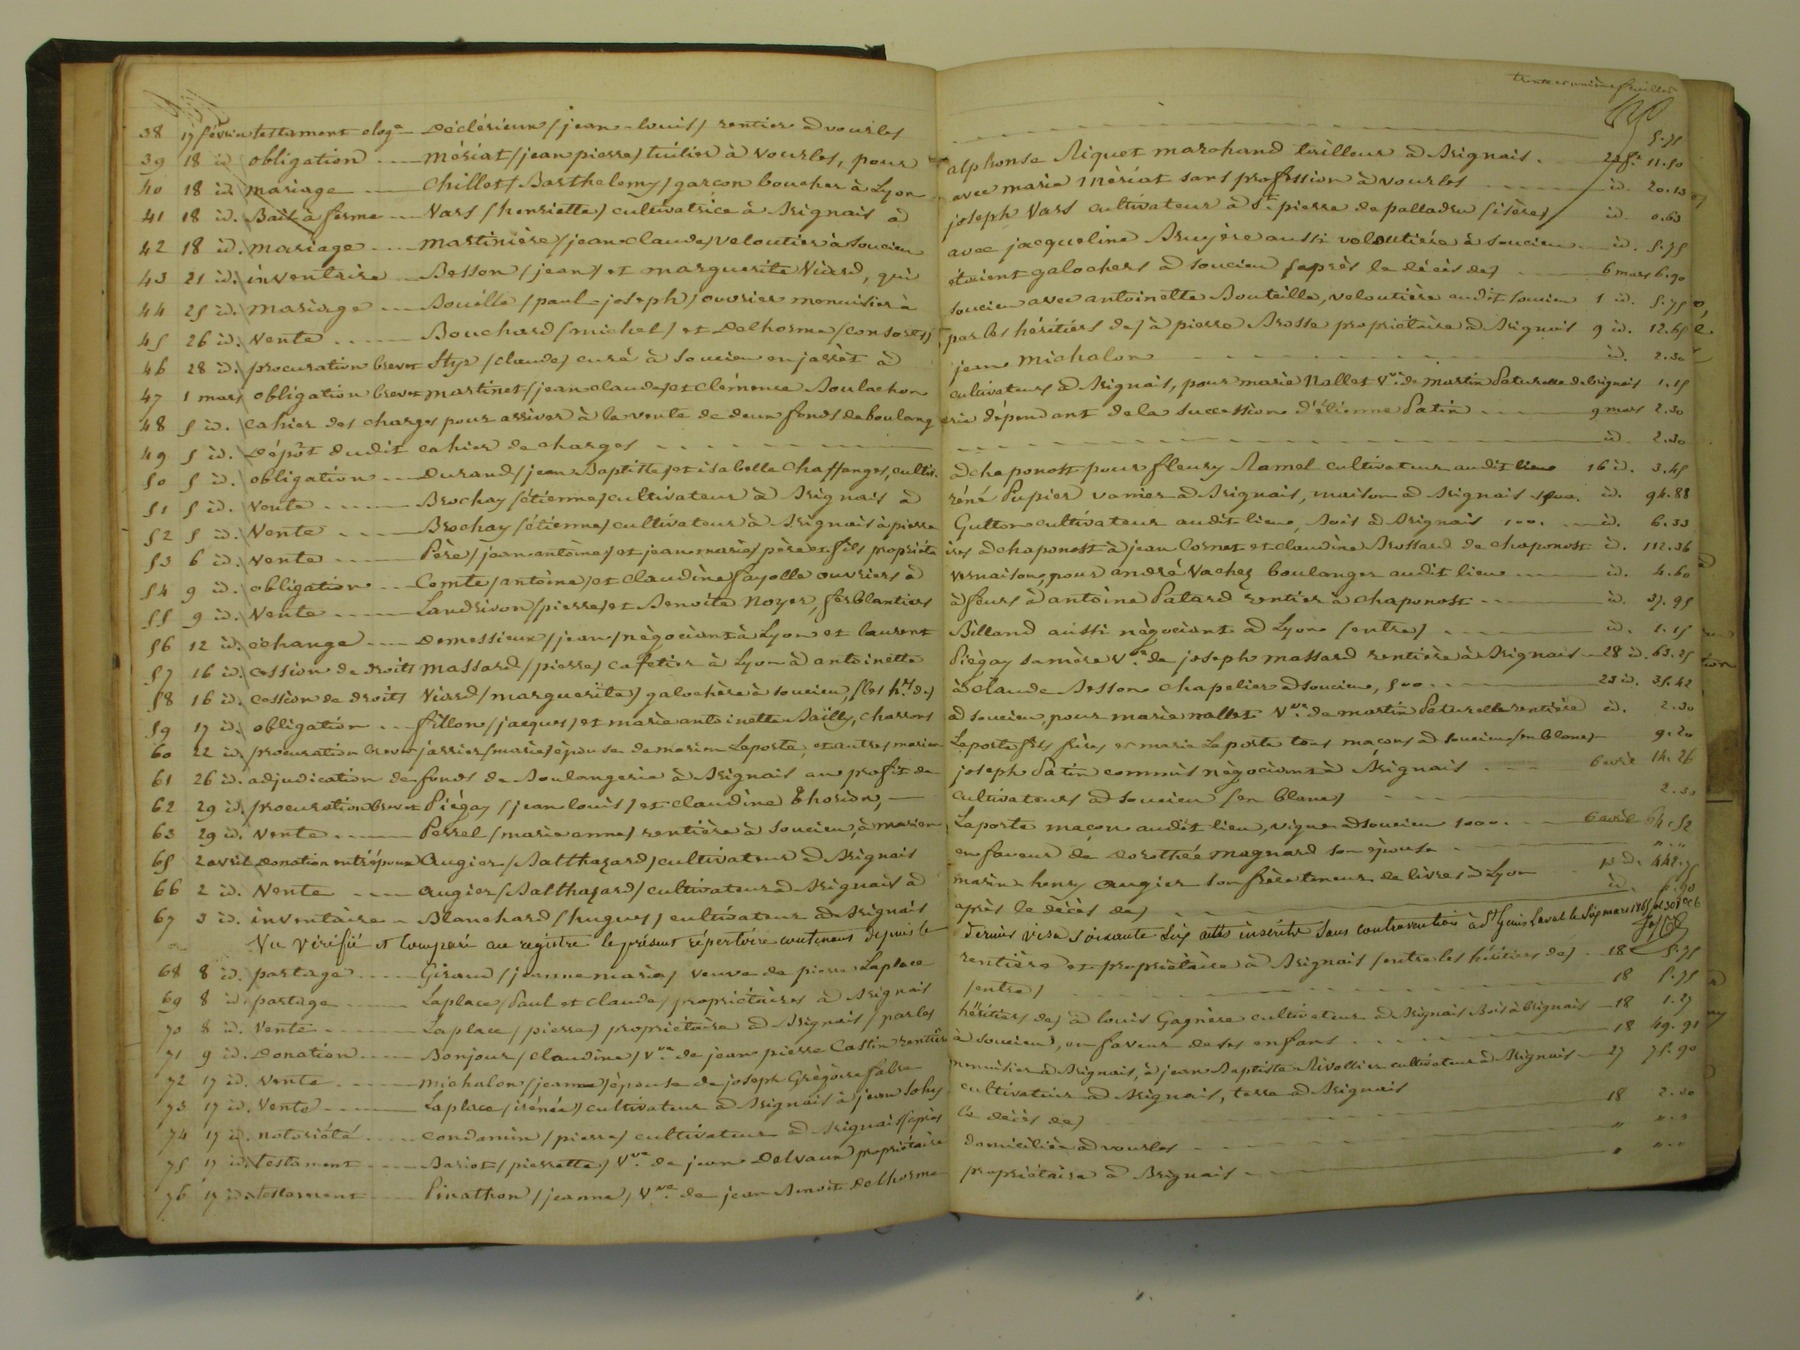 trente et unième feuillet
38 17 février testament olog.e Déclérieux (jean-louis) rentier à vourles 5.75
39 18 id. obligation Mériat (jean pierre) tuilier à vourles, pour alphonse Riquet marchand tailleur à Brignais. 11.50
40 18 id. mariage Chillet (Barthelemy) garçon boucher à Lyon avec marie Mériat sans profession à vourles id. 20.13
41 18 id. Bail à ferme Vars (henriette) cultivatrice à Brignais à joseph Vars cultivateur à St pierre de palladru (isère) id. 0.60
42 18 id. mariage Martinière (jean-claude) veloutier à Soucieu avec jacqueline Bruyère aussi veloutière à soucieu id. 5.75
43 21 id. inventaire Besson (jean) et marguerite Viard, qui étoient galochers à soucieu (après le décès de) 6 mars 6.90
44 25 id. mariage Bouille (paul-joseph) ouvrier menuisier à soucieu avec antoinette Bouteille, veloutière audit soucieu 1 id. 5.75
45 26 id. Vente Bouchard (michel) et Delhorme (consorts) par les héritiers de) à pierre Brosse propriétaire à Brignais 9 id. 12.65
46 28 id. procuration brevet (claude) curé à Soucieu en jarrêt à jean Michalon id. 2.30
47 1 mars obligation brevet martinet (jean claude) et Clémence Boulachon cultivateurs à Brignais, pour marie Nallet Vve de Martin Paturelle de brignais 1.15
48 5 id. Cahier des charges pour arriver à la vente de deux fonds de boulangerie dépendant de la succession d'étienne Patin 9 mars 2.30
49 5 id. Dépôt dudit cahier de charges id. 2.30
50 5 id. obligation Durand (jean Baptiste) et isabelle Chaffanges, cultiv. à chaponost pour fleury Ramel cultivateur audit lieu 16 id. 3.45
51 5 id. vente Brochay (étienne) cultivateur à Brignais à rené Pupier vanier à Brignais, maison à Brignais id. 94.88
52 5 id. Vente Brochay (étienne) cultivateur à Brignais à pierre Gutton cultivateur audit lieu, Bois à Brignais 100. id. 6.33
53 6 id. Vente Père (jean antoine) et jean marie) père et fils propriétaires à chaponost à jean Cornet et claudine Brossard de chaponost id. 112.36
54 9 id. obligation Comte (antoine) et Claudine fayolle ouvriers à vernaison, pour andré Vachez boulanger audit lieu id. 4.60
55 9 id. Vente Landrivon (pierre) et Benoite Noyer, ferblantiers à feurs à antoine Palard rentier à chaponost id. 31.95
56 12 id. échange Demessieux (jean) négociant à Lyon et laurent Billand aussi négociant à Lyon (entre) id. 1.15
57 16 id. Cession de droits Massard (pierre) cafetier à Lyon à antoinette Piégay sa mère Vve de joseph massard rentière à Brignais 28 id. 63.25
58 16 id. Cession de droits Viard (marguerite) galochère à soucieu, (les hrs de) à claude Besson chapelier à soucieu, 500. 23 id. 35.42
59 17 id. obligation fillon (jacques) et marie antoinette Bailly, charrons à soucieu, pour marie nallet Vve de martin Paturelle rentière id. 2.30
60 22 id. procuration brevet jarrier (marie) épouse de marion Laporte, et autres marion Laporte fils frères et marie Laporte tous maçons à soucieu (en blanc) 9.20
61 26 id. adjudication de fonds de Boulangerie à Brignais au profit de joseph Patin commis négociant à Brignais 6 avril 14.26
62 29 id. procuration brevet Piégay (jean louis) et claudine Thorion, cultivateurs à soucieu (en blanc) 2.30
63 29 id. Vente Perrel (marie anne) rentière à soucieu, à marion Laporte maçon audit lieu, vigne à soucieu 1000. 6 avril 64.52
65 2 avril donation entr'époux Augier (Balthazard) cultivateur à Brignais en faveur de dorothée magnard son épouse „.„
66 2 id. Vente Augier (Balthazard) cultivateur à Brignais à marin henry augier son frère teneur de livres à Lyon 442.75
67 3 id. inventaire Blanchard (hugues) cultivateur à Brignais après le décès de) id.
Vu vérifié et comparé au registre le présent répertoire contenant depuis le dernier visa soixante six actes inscrits sans contravention à St Genis Laval le
68 8 id. partage Giraud (jeanne marie) veuve de pierre Laplace rentière et propriétaire à Brignais (entre les héritiers de) 18 5.75
69 8 id. partage Laplace (Paul et Claude) propriétaires à Brignais (entre) 18 5.75
70 8 id. Vente Laplace (pierre) propriétaire à Brignais (par les héritiers de) à louis Gagnère cultivateur à Brignais Bois à brignais 18 1.27
71 9 id. Donation Bonjour (claudine) Vve de jean pierre Castin rentière à soucieu, en faveur de ses enfans 18 49.91
72 17 id. vente Michalon (jeanne) épouse de joseph Grégoire fabre menuisier à Brignais, à jean Baptiste Rivollier cultivateur à Brignais 27 75.90
73 17 id. Vente Laplace (irénée) cultivateur à Brignais à jean cultivateur à Brignais, terre à Brignais
74 17 id. notoriété Condamin (pierre) cultivateur à Brignais (après le décès de) 18 2.30
75 17 id. testament Bariot (pierrette) Vve de jean Delvaux propriétaire domiciliée à vourles „ „.„
76 17 id. testament Pinathon (jeanne) Vve de jean Benoit Delhorme propriétaire à Brignais „ „.„